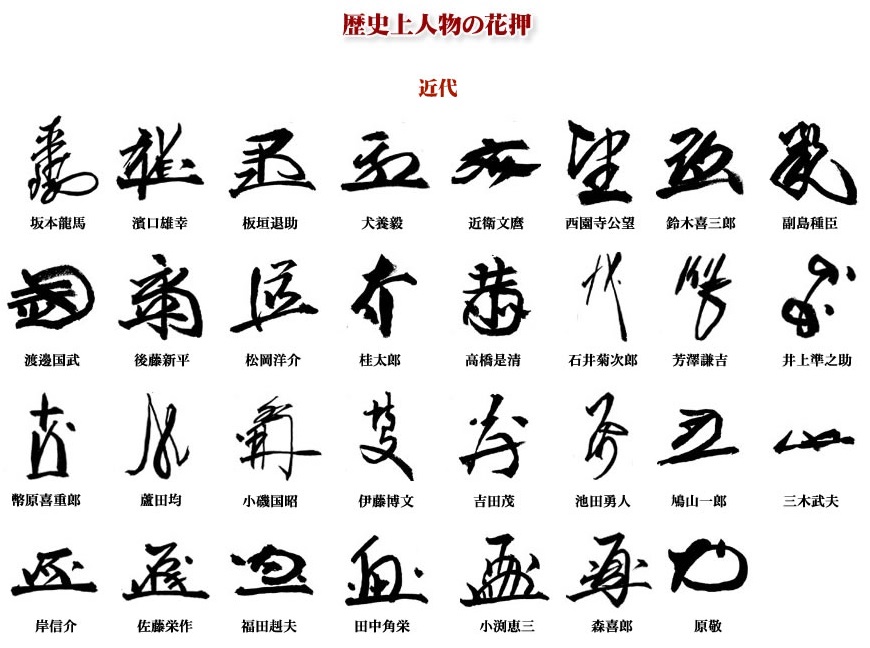 歴史上人物の花押
近代
坂本龍馬 濱口雄幸 板垣退助 犬養毅 近衛文麿 西園寺公望 鈴木喜三郎 副島種臣
渡邊国武 後藤新平 松岡洋介 桂太郎 高橋是清 石井菊次郎 芳澤謙吉 井上準之助
幣原喜重郎 蘆田均 小磯国昭 伊藤博文 吉田茂 池田勇人 鳩山一郎 三木武夫
岸信介 佐藤栄作 福田赳夫 田中角栄 小渕恵三 森喜郎 原敬